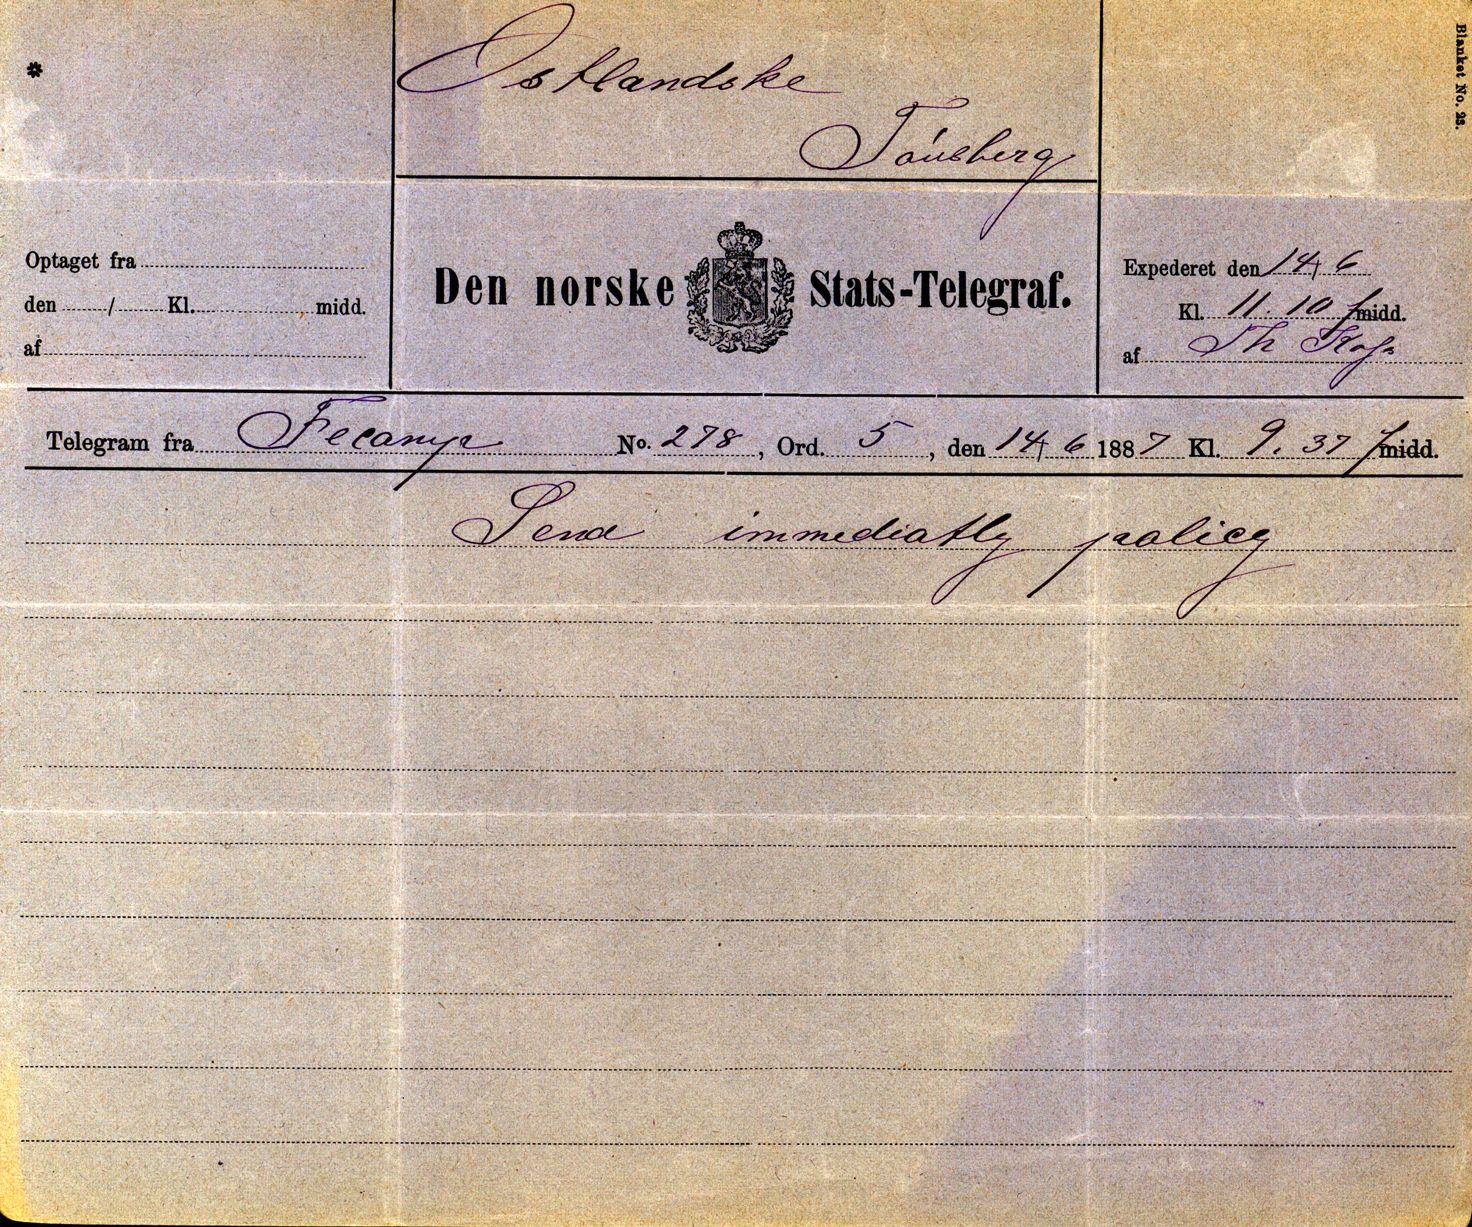 *
Blanket No. 28.
Ostlandske
Tønsberg
Optaget fra
den / Kl. midd.
af
Den norske Stats-Telegraf.
Expederet den 14/6
Kl. 11.10 f midd.
af Th
Telegram fra Fecamp No. 278, Ord. 5, den 14/6 1887 Kl. 9.37 f midd.
Send immediatly policy